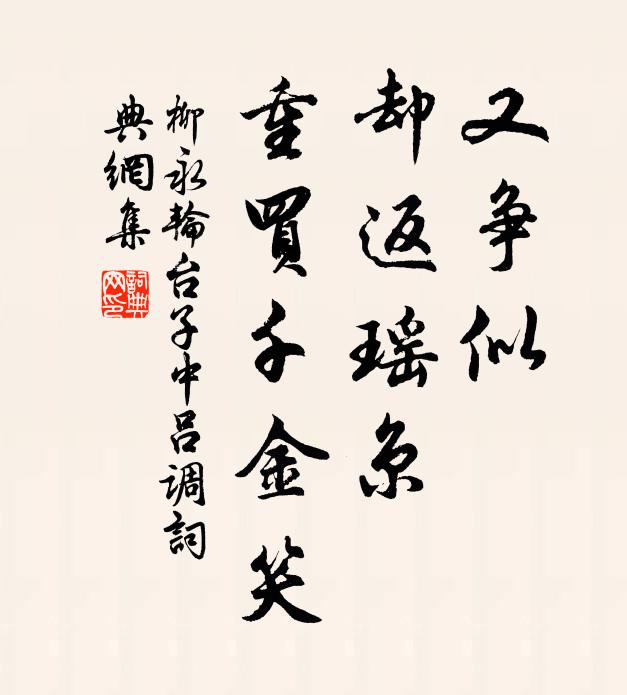 又争似
却返瑶京
重買千金笑
柳永輪台子中吕調詞
典網集
詞典
网印